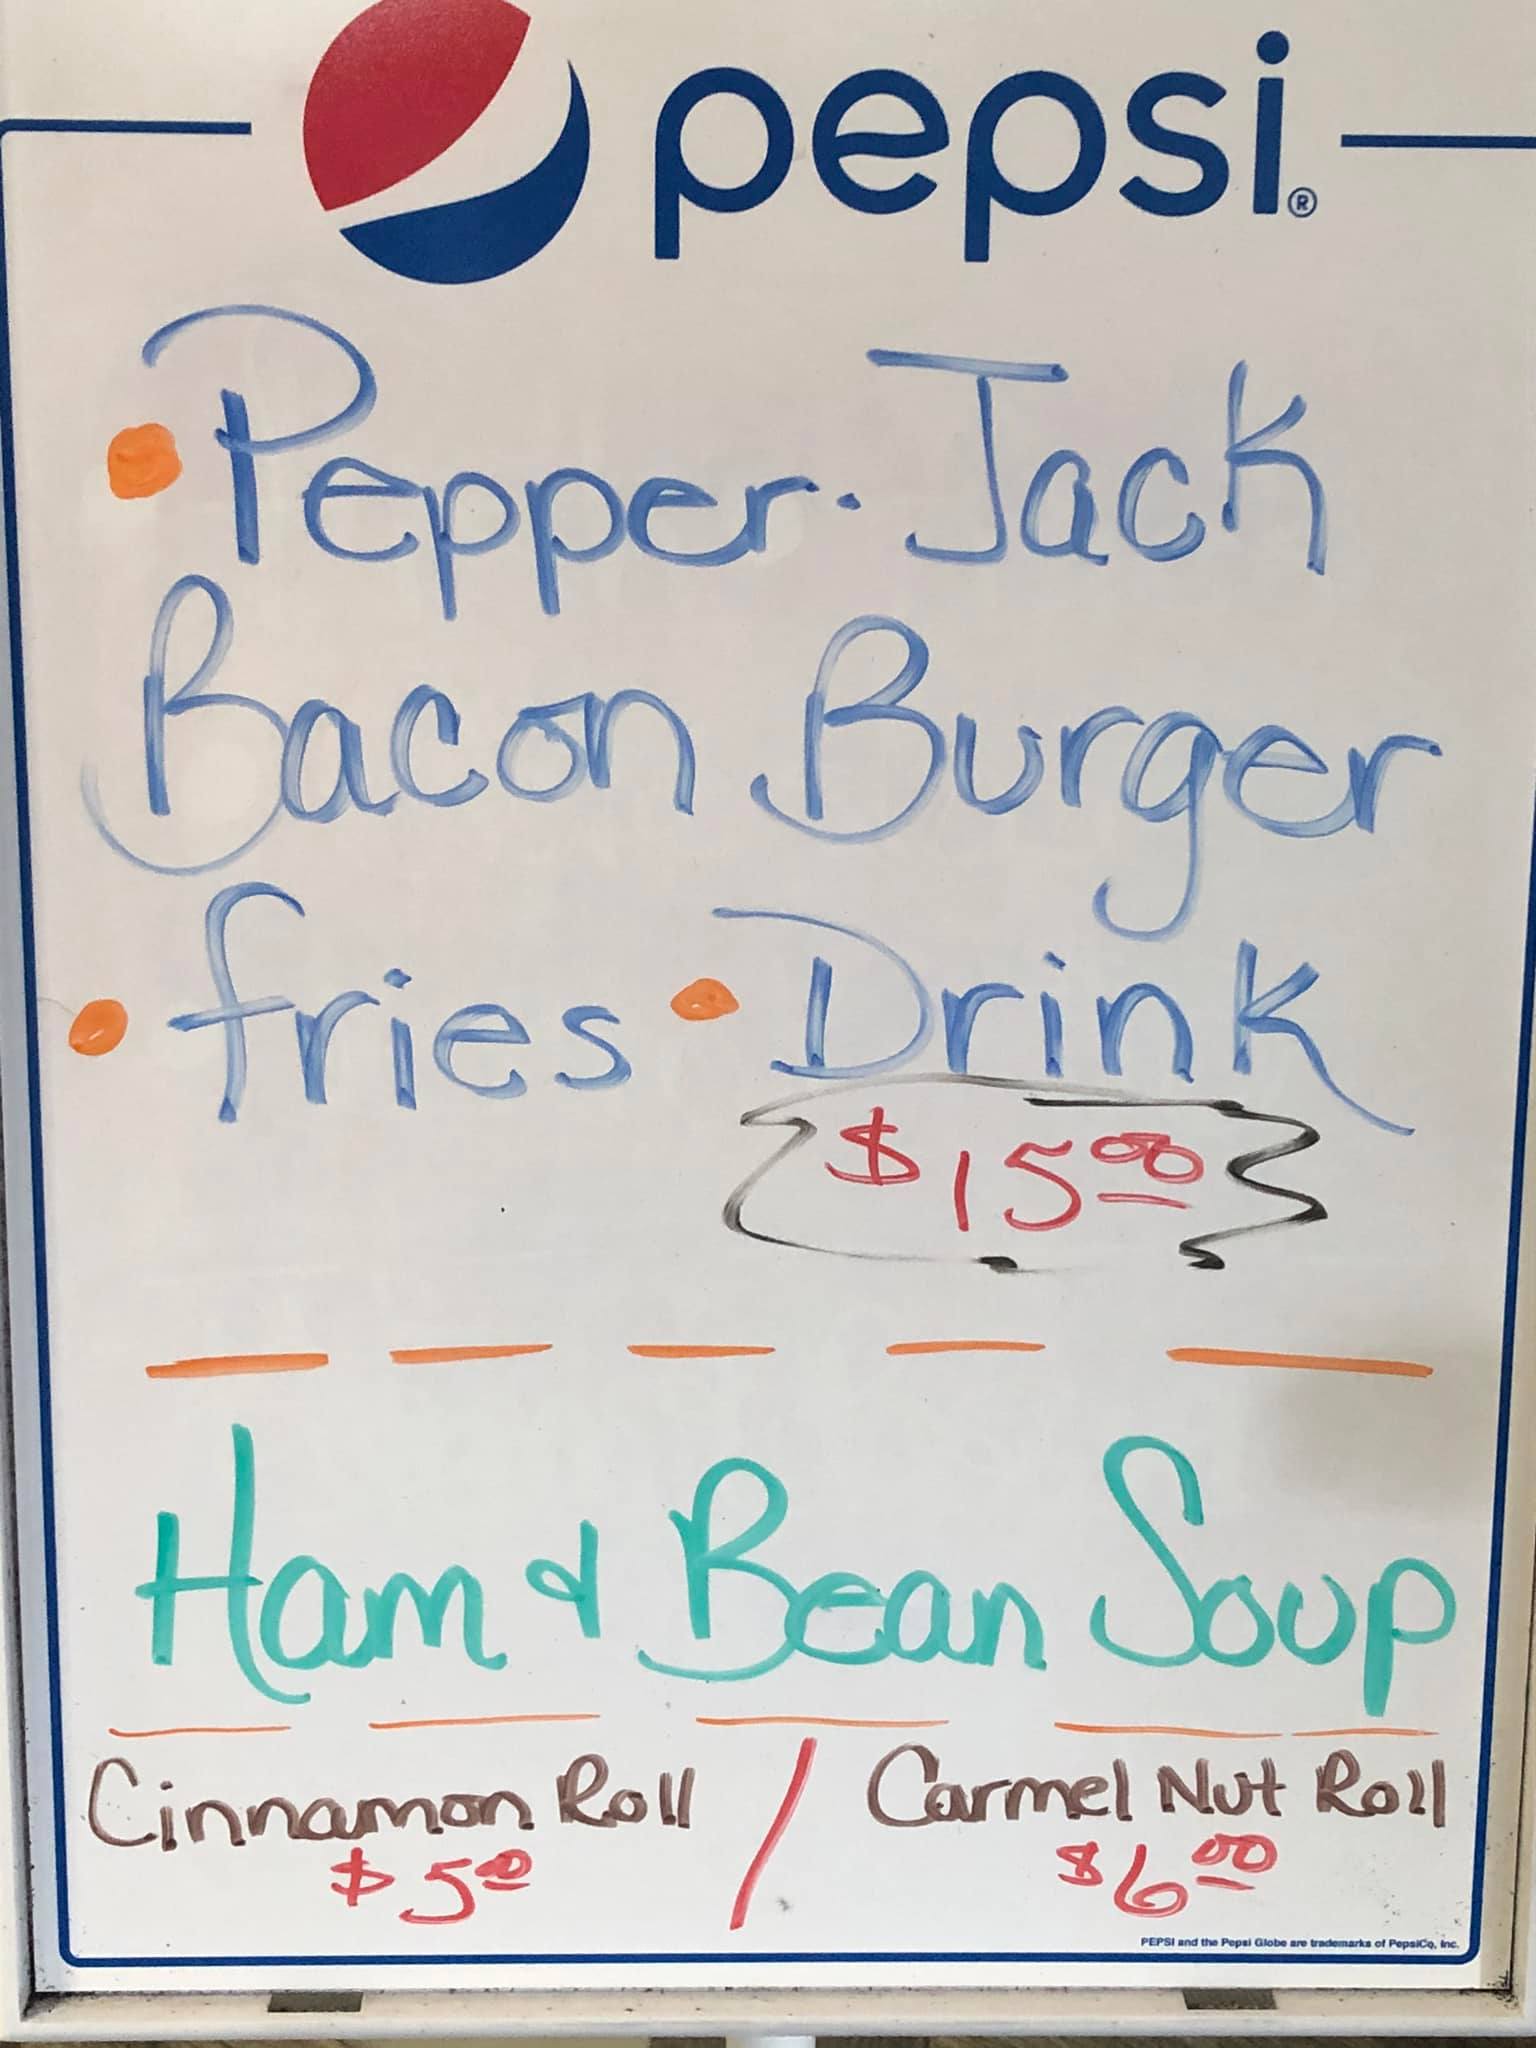 pepsi®
• Pepper-Jack
Bacon Burger
• fries • Drink
$15.00
Ham & Bean Soup
Cinnamon Roll / Carmel Nut Roll
$5.00 $6.00
PEPSI and the Pepsi Globe are trademarks of PepsiCo, Inc.